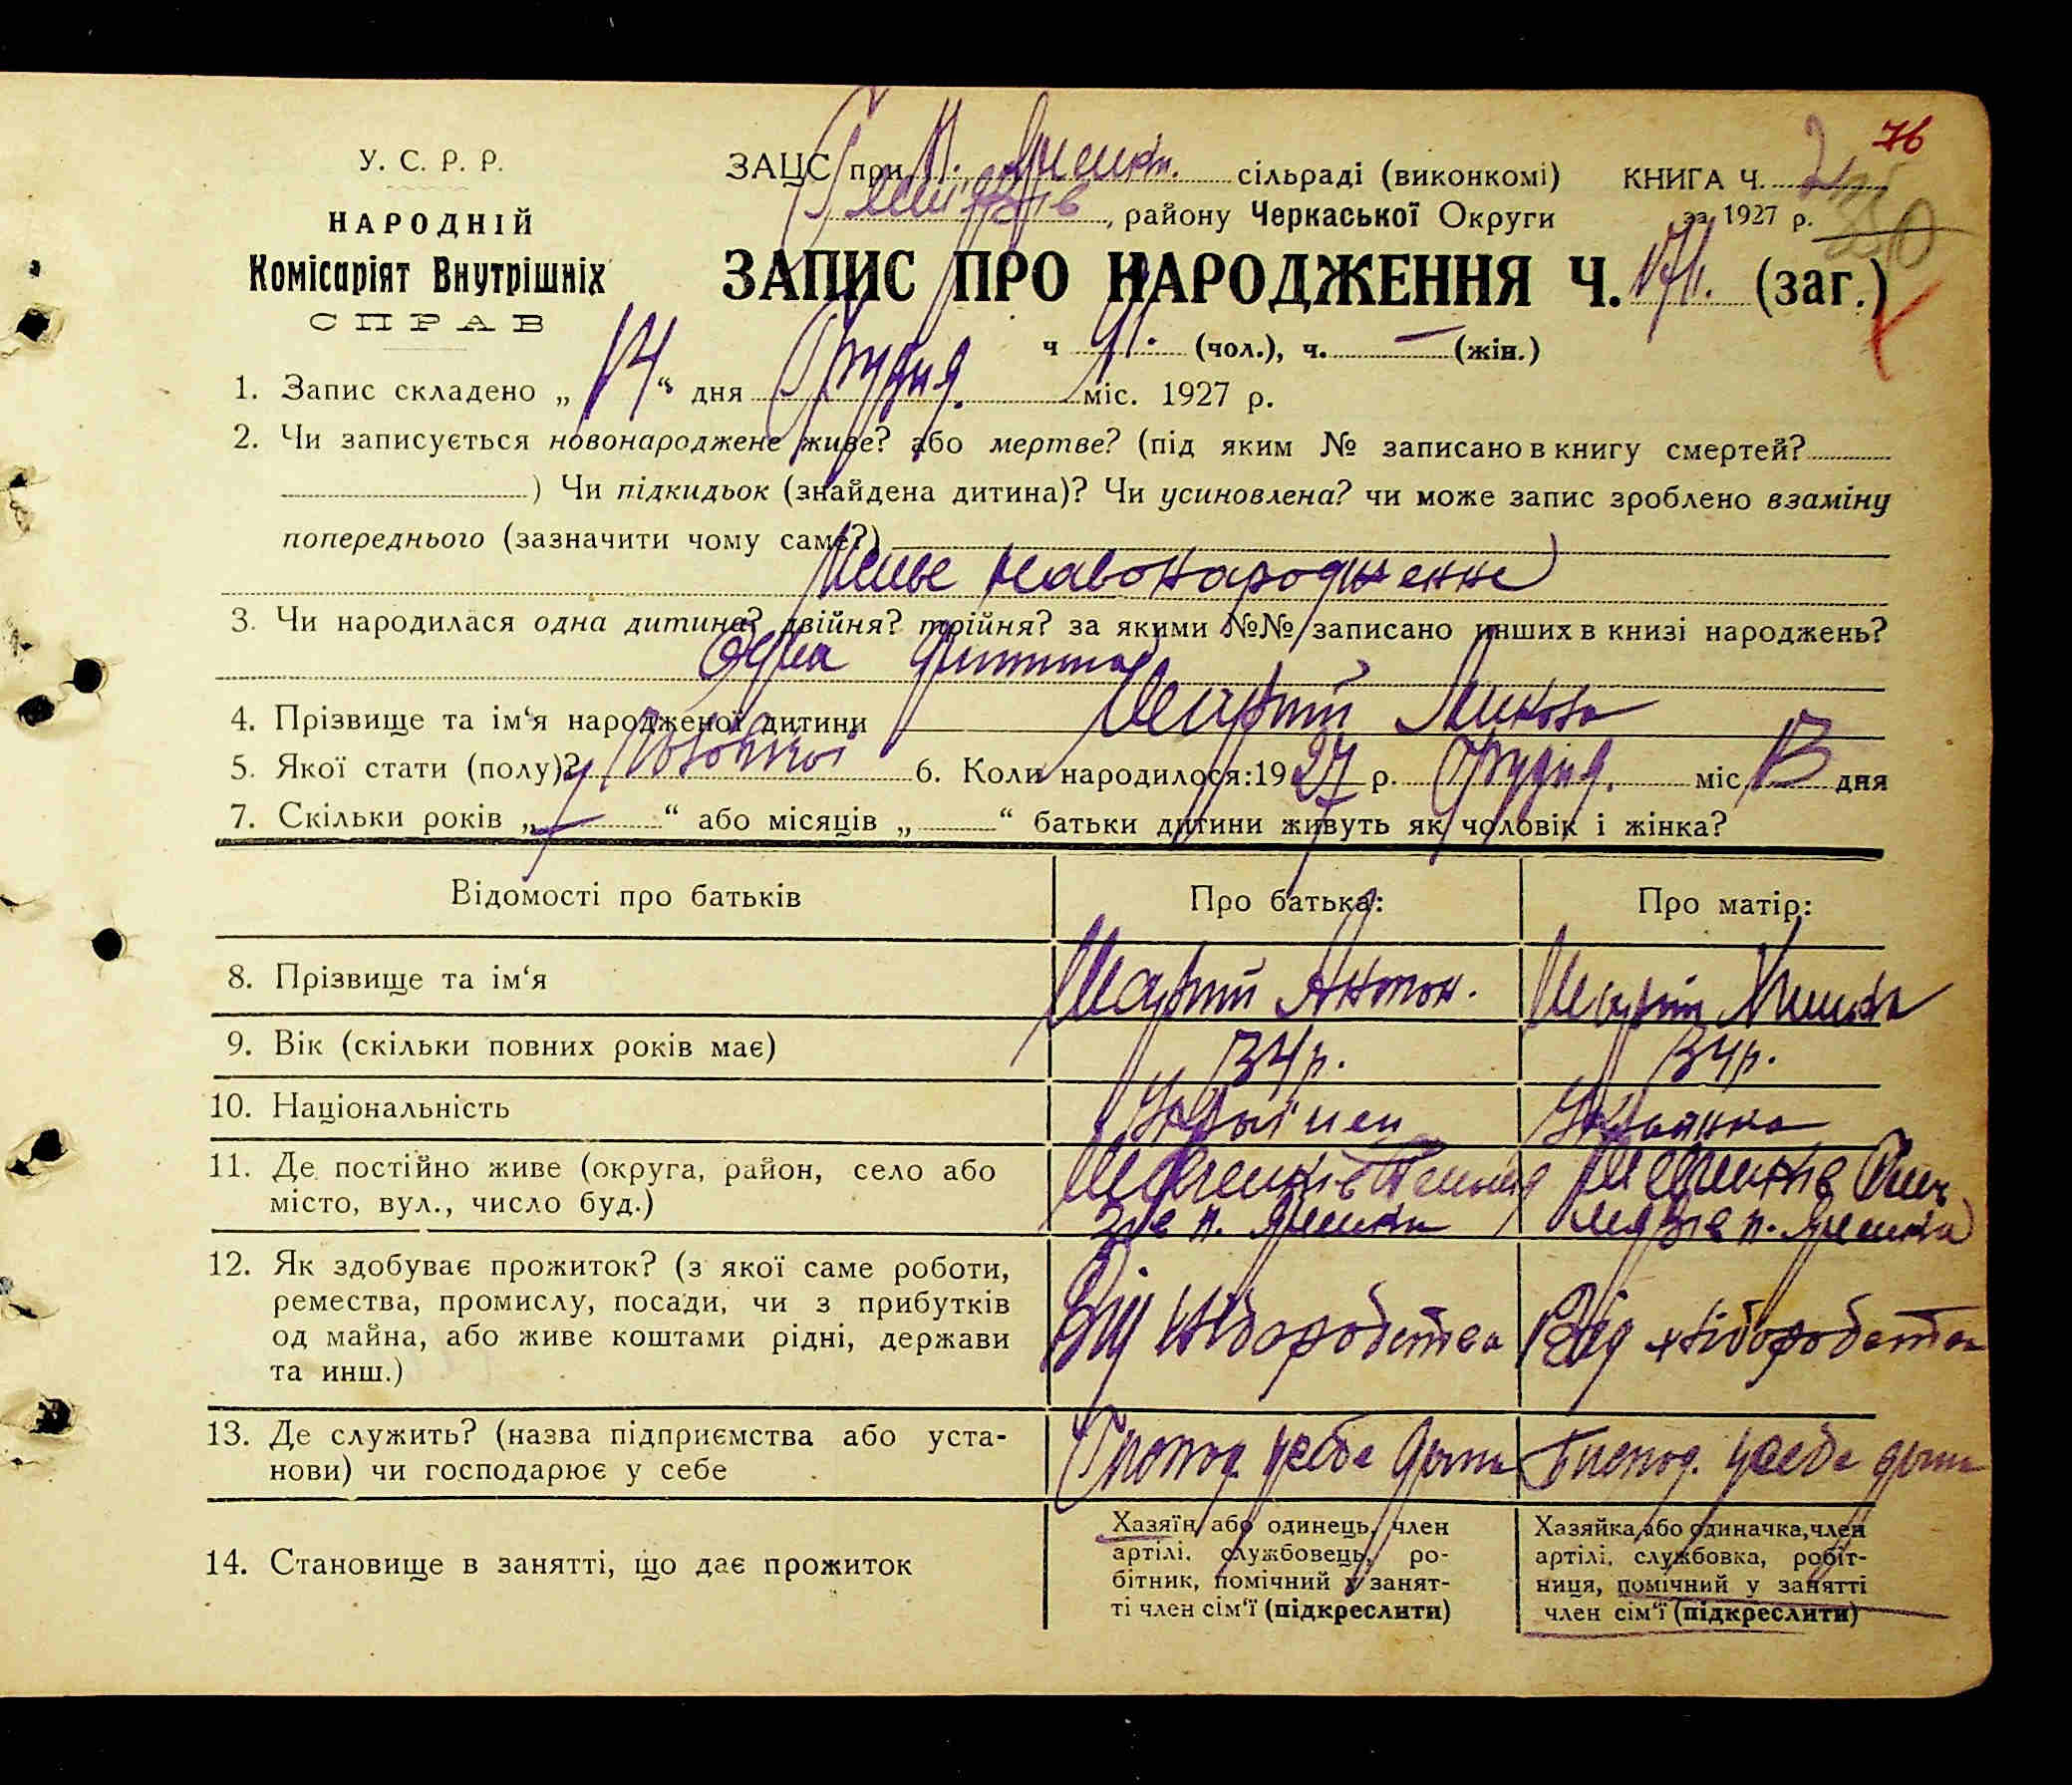 76
У. С. Р. Р.
НАРОДНІЙ
Комісаріят Внутрішніх
СПРАВ
ЗАЦС при сільраді (виконкомі) КНИГА Ч.
району Черкаської Округи за 1927 р.
ЗАПИС ПРО НАРОДЖЕННЯ Ч. (заг.)
ч (чол.), ч. — (жін.)
1. Запис складено „14“ дня Грудня міс. 1927 р.
2. Чи записується новонароджене живе? або мертве? (під яким № записано в книгу смертей?
) Чи підкидьок (знайдена дитина)? Чи усиновлена? чи може запис зроблено взаміну
попереднього (зазначити чому саме?)
3. Чи народилася одна дитина? двійня? трійня? за якими №№ записано инших в книзі народжень?
Одна дитина
4. Прізвище та ім‘я народженої дитини Микола
5. Якої стати (полу)? 6. Коли народилося: 1927 р. Грудня міс. 13 дня
7. Скільки років „—“ або місяців „ “ батьки дитини живуть як чоловік і жінка?
Відомості про батьків Про батька: Про матір:
8. Прізвище та ім‘я Антон.
9. Вік (скільки повних років має) 34 р. 34 р.
10. Національність Українец Українка
11. Де постійно живе (округа, район, село або
місто, вул., число буд.)
12. Як здобуває прожиток? (з якої саме роботи,
ремества, промислу, посади, чи з прибутків
од майна, або живе коштами рідні, держави
та инш.)
Від хліборобства Від хліборобства
13. Де служить? (назва підприємства або уста-
нови) чи господарює у себе
Господ. у себе дома Господ. у себе дома
14. Становище в занятті, що дає прожиток
Хазяїн або одинець, член
артілі, службовець, ро-
бітник, помічний у занят-
ті член сім‘ї (підкреслити)
Хазяйка або одиначка, член
артілі, службовка, робіт-
ниця, помічний у занятті
член сім‘ї (підкреслити)